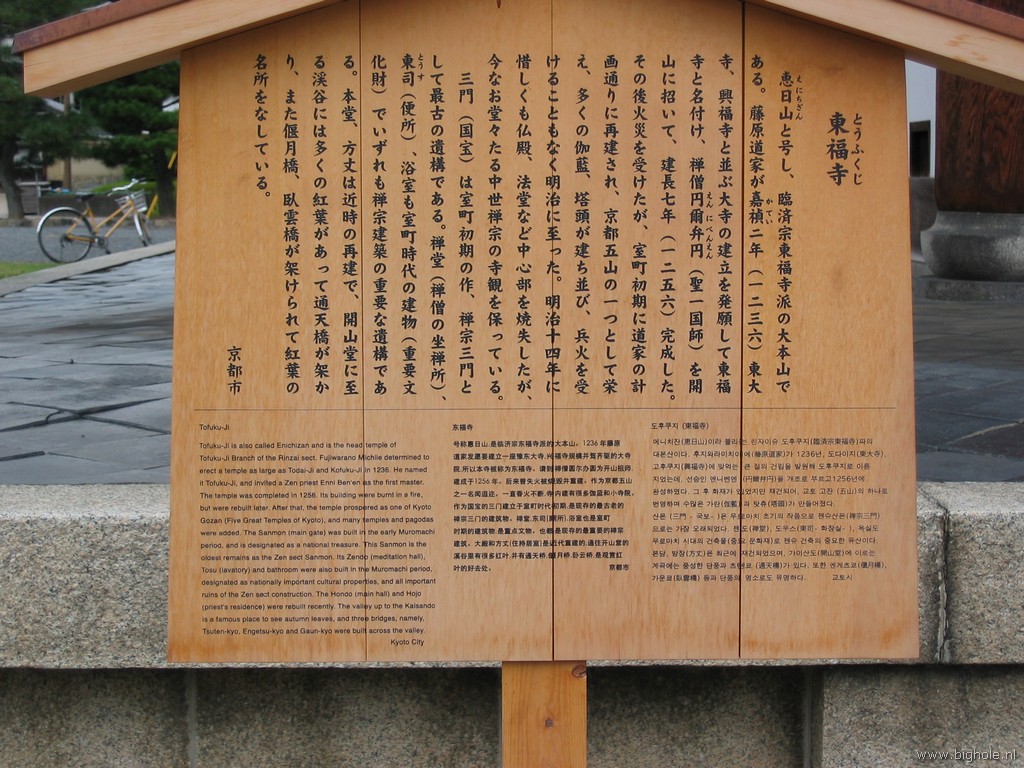 とうふくじ
東福寺
えにちざん
恵日山と号し、臨済宗東福寺派の大本山で
かてい
ある。藤原道家が嘉禎二年（一二三六）東大
寺、興福寺と並ぶ大寺の建立を発願して東福
えんにべんえん
寺と名付け、禅僧円爾弁円（聖一国師）を開
山に招いて、建長七年（一二五六）完成した。
その後火災を受けたが、室町初期に道家の計
画通りに再建され、京都五山の一つとして栄
え、多くの伽藍、塔頭が建ち並び、兵火を受
けることもなく明治に至った。明治十四年に
惜しくも仏殿、法堂など中心部を焼失したが、
今なお堂々たる中世禅宗の寺観を保っている。
三門（国宝）は室町初期の作、禅宗三門と
して最古の遺構である。禅堂（禅僧の坐禅所）、
とうす
東司（便所）、浴室も室町時代の建物（重要文
化財）でいずれも禅宗建築の重要な遺構であ
る。本堂、方丈は近時の再建で、開山堂に至
る渓谷には多くの紅葉があって通天橋が架か
り、また偃月橋、臥雲橋が架けられて紅葉の
名所をなしている。
京都市
Tofuku-Ji
Tofuku-Ji is also called Enichizan and is the head temple of
Tofuku-Ji Branch of the Rinzai sect. Fujiwarano Michiie determined to
erect a temple as large as Todai-Ji and Kofuku-Ji in 1236. He named
it Tofuku-Ji, and invited a Zen priest Enni Ben'en as the first master.
The temple was completed in 1256. Its building were burnt in a fire,
but were rebuilt later. After that, the temple prospered as one of Kyoto
Gozan (Five Great Temples of Kyoto), and many temples and pagodas
were added. The Sanmon (main gate) was built in the early Muromachi
period, and is designated as a national treasure. This Sanmon is the
oldest remains as the Zen sect Sanmon. Its Zendo (meditation hall),
Tosu (lavatory) and bathroom were also built in the Muromachi period,
designated as nationally important cultural properties, and all important
ruins of the Zen sect construction. The Hondo (main hall) and Hojo
(priest's residence) were rebuilt recently. The valley up to the Kaisando
is a famous place to see autumn leaves, and three bridges, namely,
Tsuten-kyo, Engetsu-kyo and Gaun-kyo were built across the valley.
Kyoto City
东福寺
号称惠日山,是临济宗东福寺派的大本山。1236年藤原
道家发愿要建立一座像东大寺,兴福寺规模并驾齐驱的大寺
院,所以本寺被称为东福寺。请到禅僧圆尔办圆为开山祖师
建成于1256年。后来曾失火被烧毁并重建。作为京都五山
之一名闻遐迩,一直香火不断,寺内建有很多伽蓝和小寺院。
作为国宝的三门建立于室町时代初期,是现存的最古老的
禅宗三门的建筑物。禅堂,东司(厕所),浴室也是室町
时期的建筑物,是重点文物,也都是现存的最重要的禅宗
建筑。大殿和方丈(住持居室)是近代重建的,通往开山堂的
溪谷里有很多红叶,并有通天桥,偃月桥,卧云桥,是观赏红
叶的好去处。
京都市
도후쿠지 (東福寺)
에니치잔(恵日山)이라 불리는 린자이슈 도후쿠지(臨済宗東福寺)파의
대본산이다. 후지와라미치이에(藤原道家)가 1236년, 도다이지(東大寺),
고후쿠지(興福寺)에 맞먹는 큰 절의 건립을 발원해 도후쿠지로 이름
지었는데, 선승인 엔니벤엔 (円爾弁円)을 개조로 부르고1256년에
완성하였다. 그 후 화재가 있었지만 재건되어, 교토 고잔 (五山)의 하나로
번영하며 수많은 가란(伽藍)과 탓츄(塔頭)가 만들어졌다.
산몬 (三門, 국보)은 무로마치 초기의 작품으로 젠슈산몬(禅宗三門)
으로는 가장 오래되었다. 젠도(禅堂), 도우스(東司, 화장실), 욕실도
무로마치 시대의 건축물(중요 문화재)로 젠슈 건축의 중요한 유산이다.
본당, 방장(方丈)은 최근에 재건되었으며, 가이산도(開山堂)에 이르는
계곡에는 풍성한 단풍과 츠텐쿄 (通天橋)가 있다. 또한 엔게츠쿄(偃月橋),
가운쿄(臥雲橋) 등과 단풍의 명소로도 유명하다.
교토시
www.bighole.nl